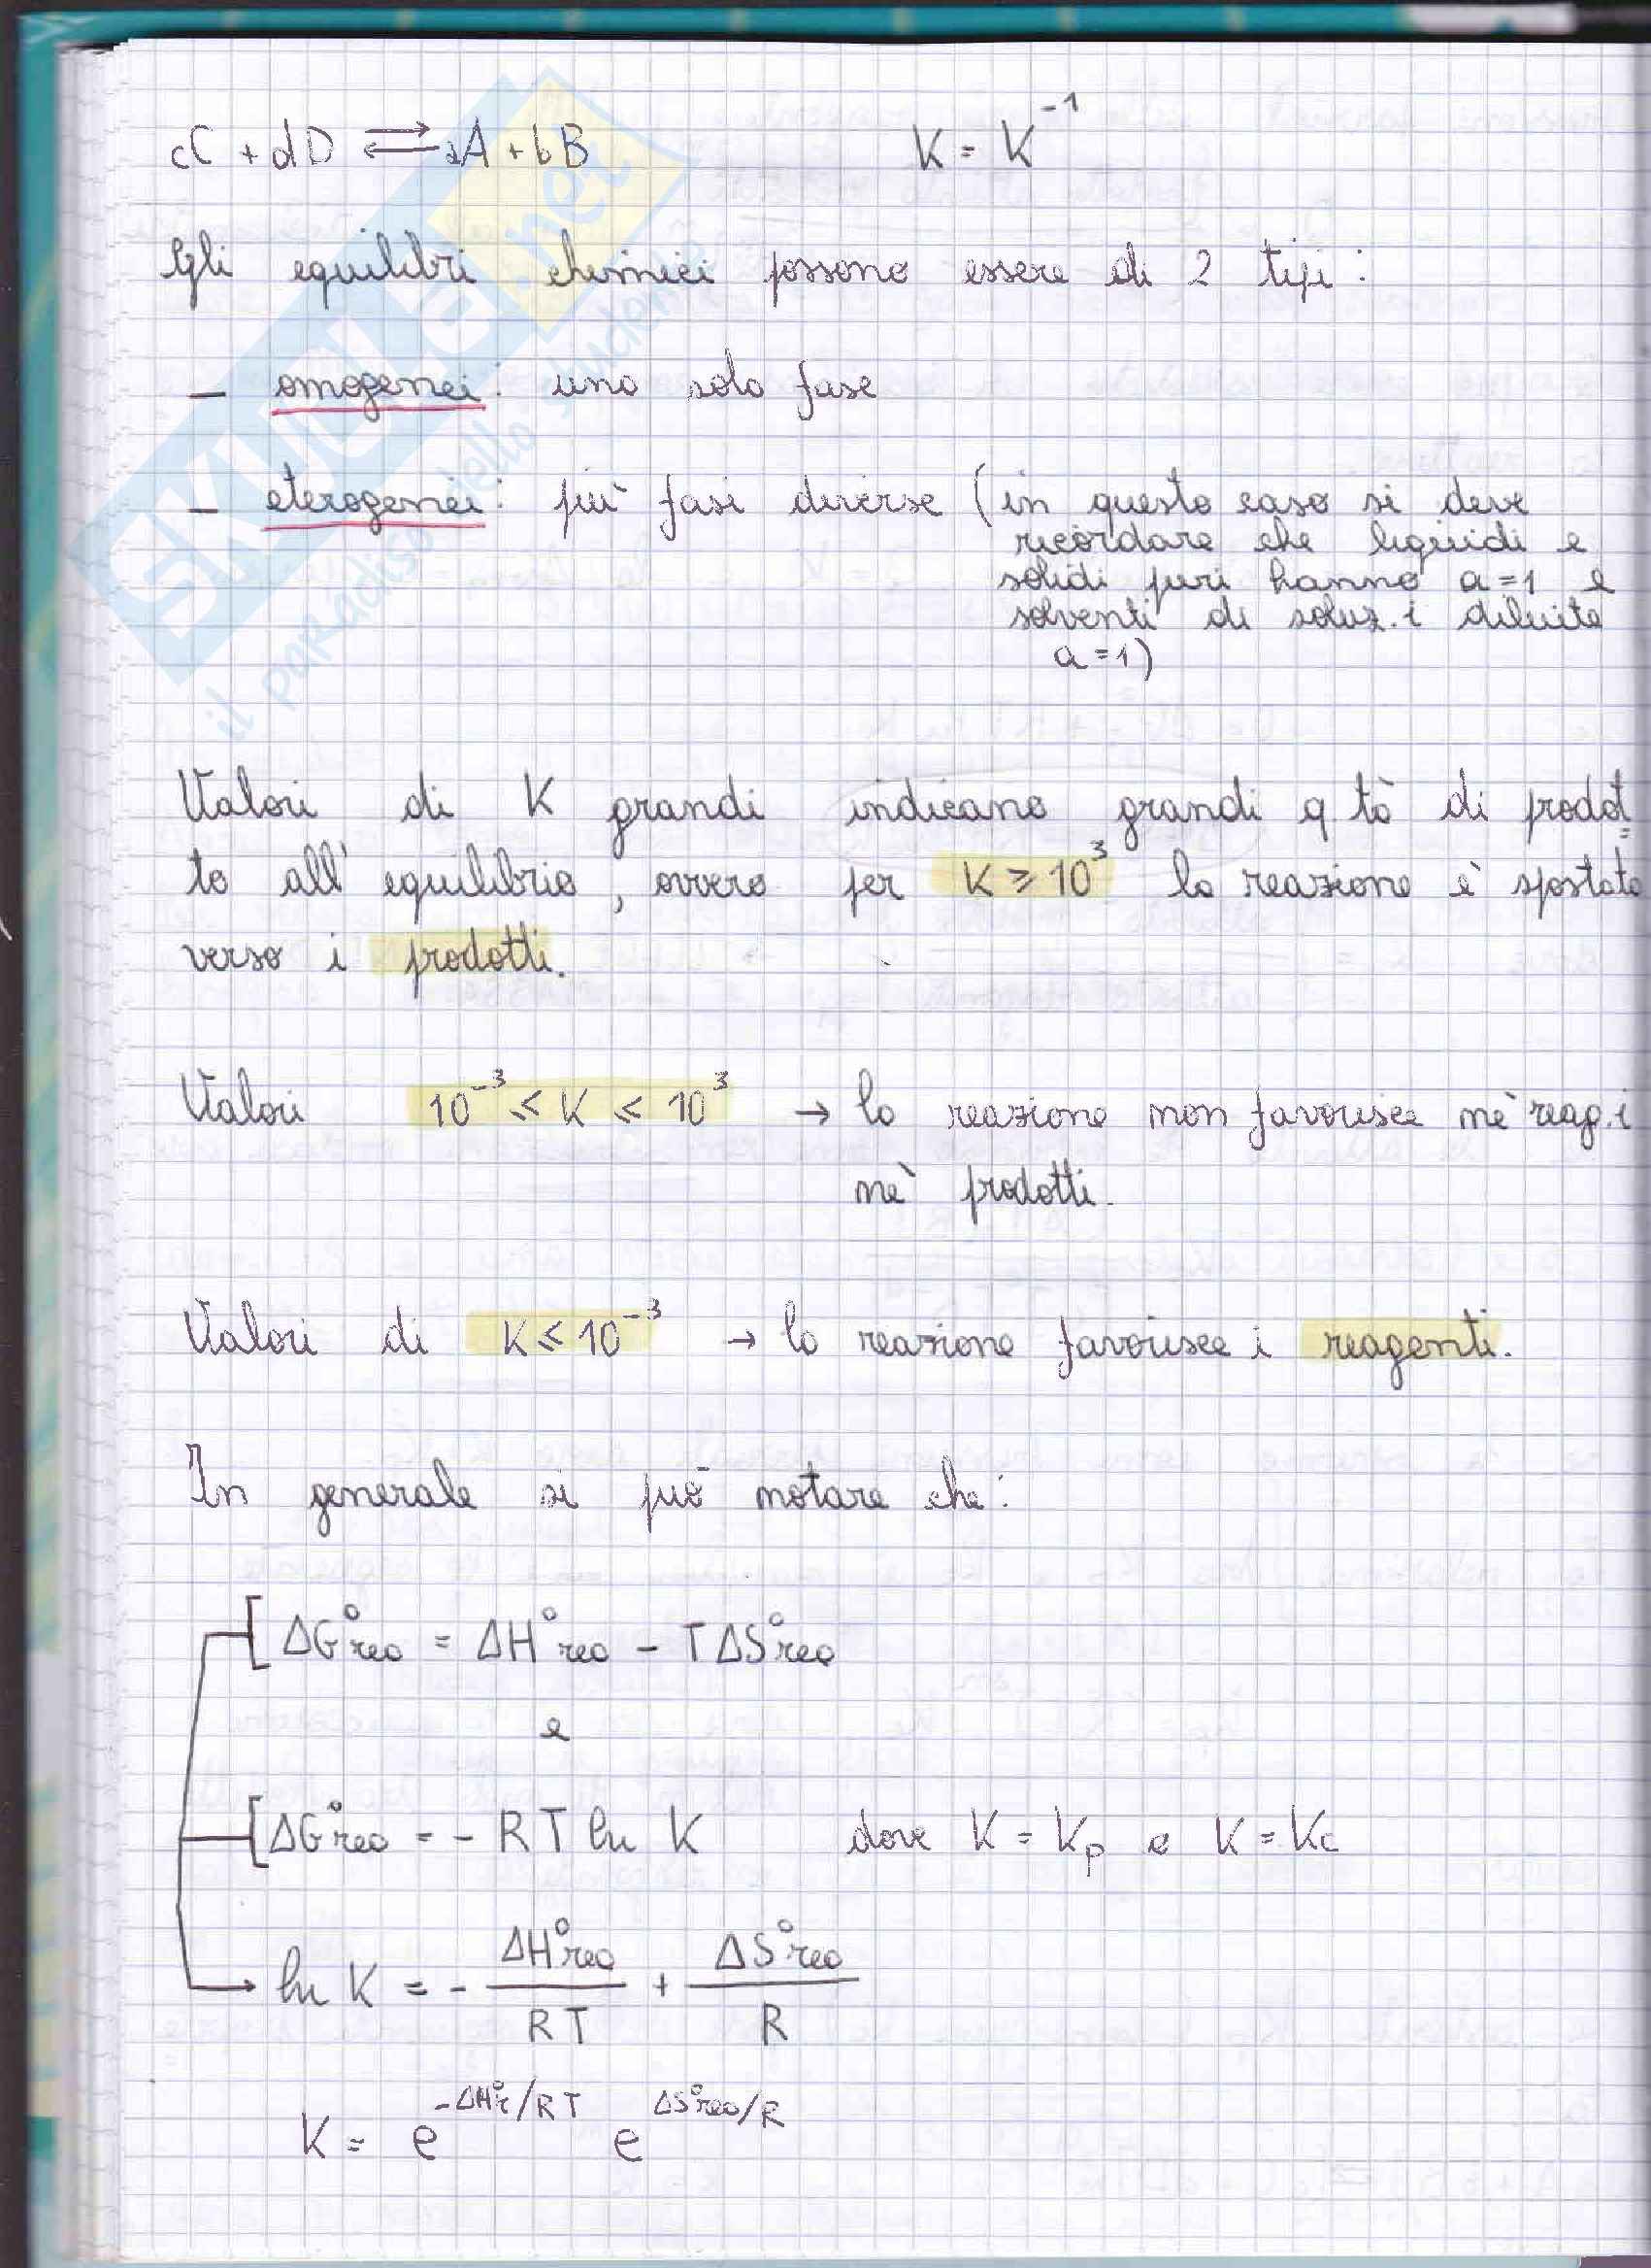 cC + dD ⇌ aA + bB K = K⁻¹
Gli equilibri chimici possono essere di 2 tipi:
- omogenei: una sola fase
- eterogenei: più fasi diverse (in questo caso si deve
ricordare che liquidi e
solidi puri hanno a=1 e
solventi di soluz.i diluite
a=1)
Valori di K grandi indicano grandi q.tà di prodot=
to all'equilibrio, ovvero per K ⩾ 10³ la reazione è spostata
verso i prodotti.
Valori 10⁻³ ⩽ K ⩽ 10³ → la reazione non favorisce nè reag.i
nè prodotti.
Valori di K ⩽ 10⁻³ → la reazione favorisce i reagenti.
In generale si può notare che:
[ΔG°rea = ΔH°rea - TΔS°rea
e
[ΔG°rea = - RT ln K dove K = Kp e K = Kc
→ ln K = - ΔH°rea/RT + ΔS°rea/R
K = e^(-ΔH°r/RT) e^(ΔS°rea/R)
SKUOLA.net
il paradiso dello studente